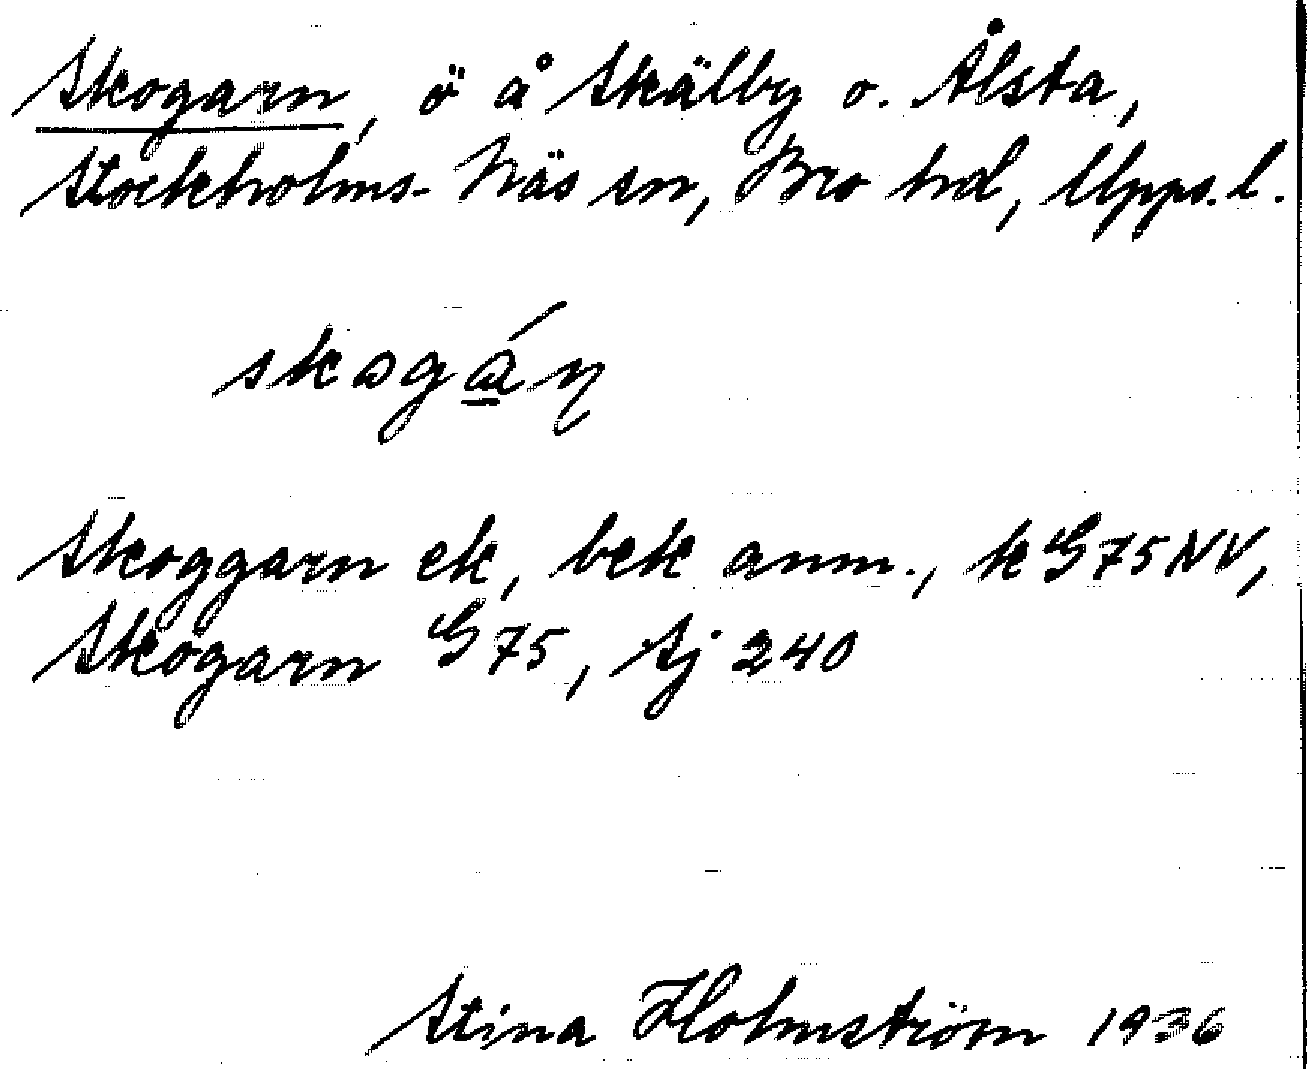 Skogarn, ö å Skälby o. Ålsta,
Stockholms-Näs sn, Bro hd, Upps. l.
skogá̱ṇ
Skoggarn ek, bek anm., k G75NV,
Skogarn G75, Sj 240
Stina Holmström 1936